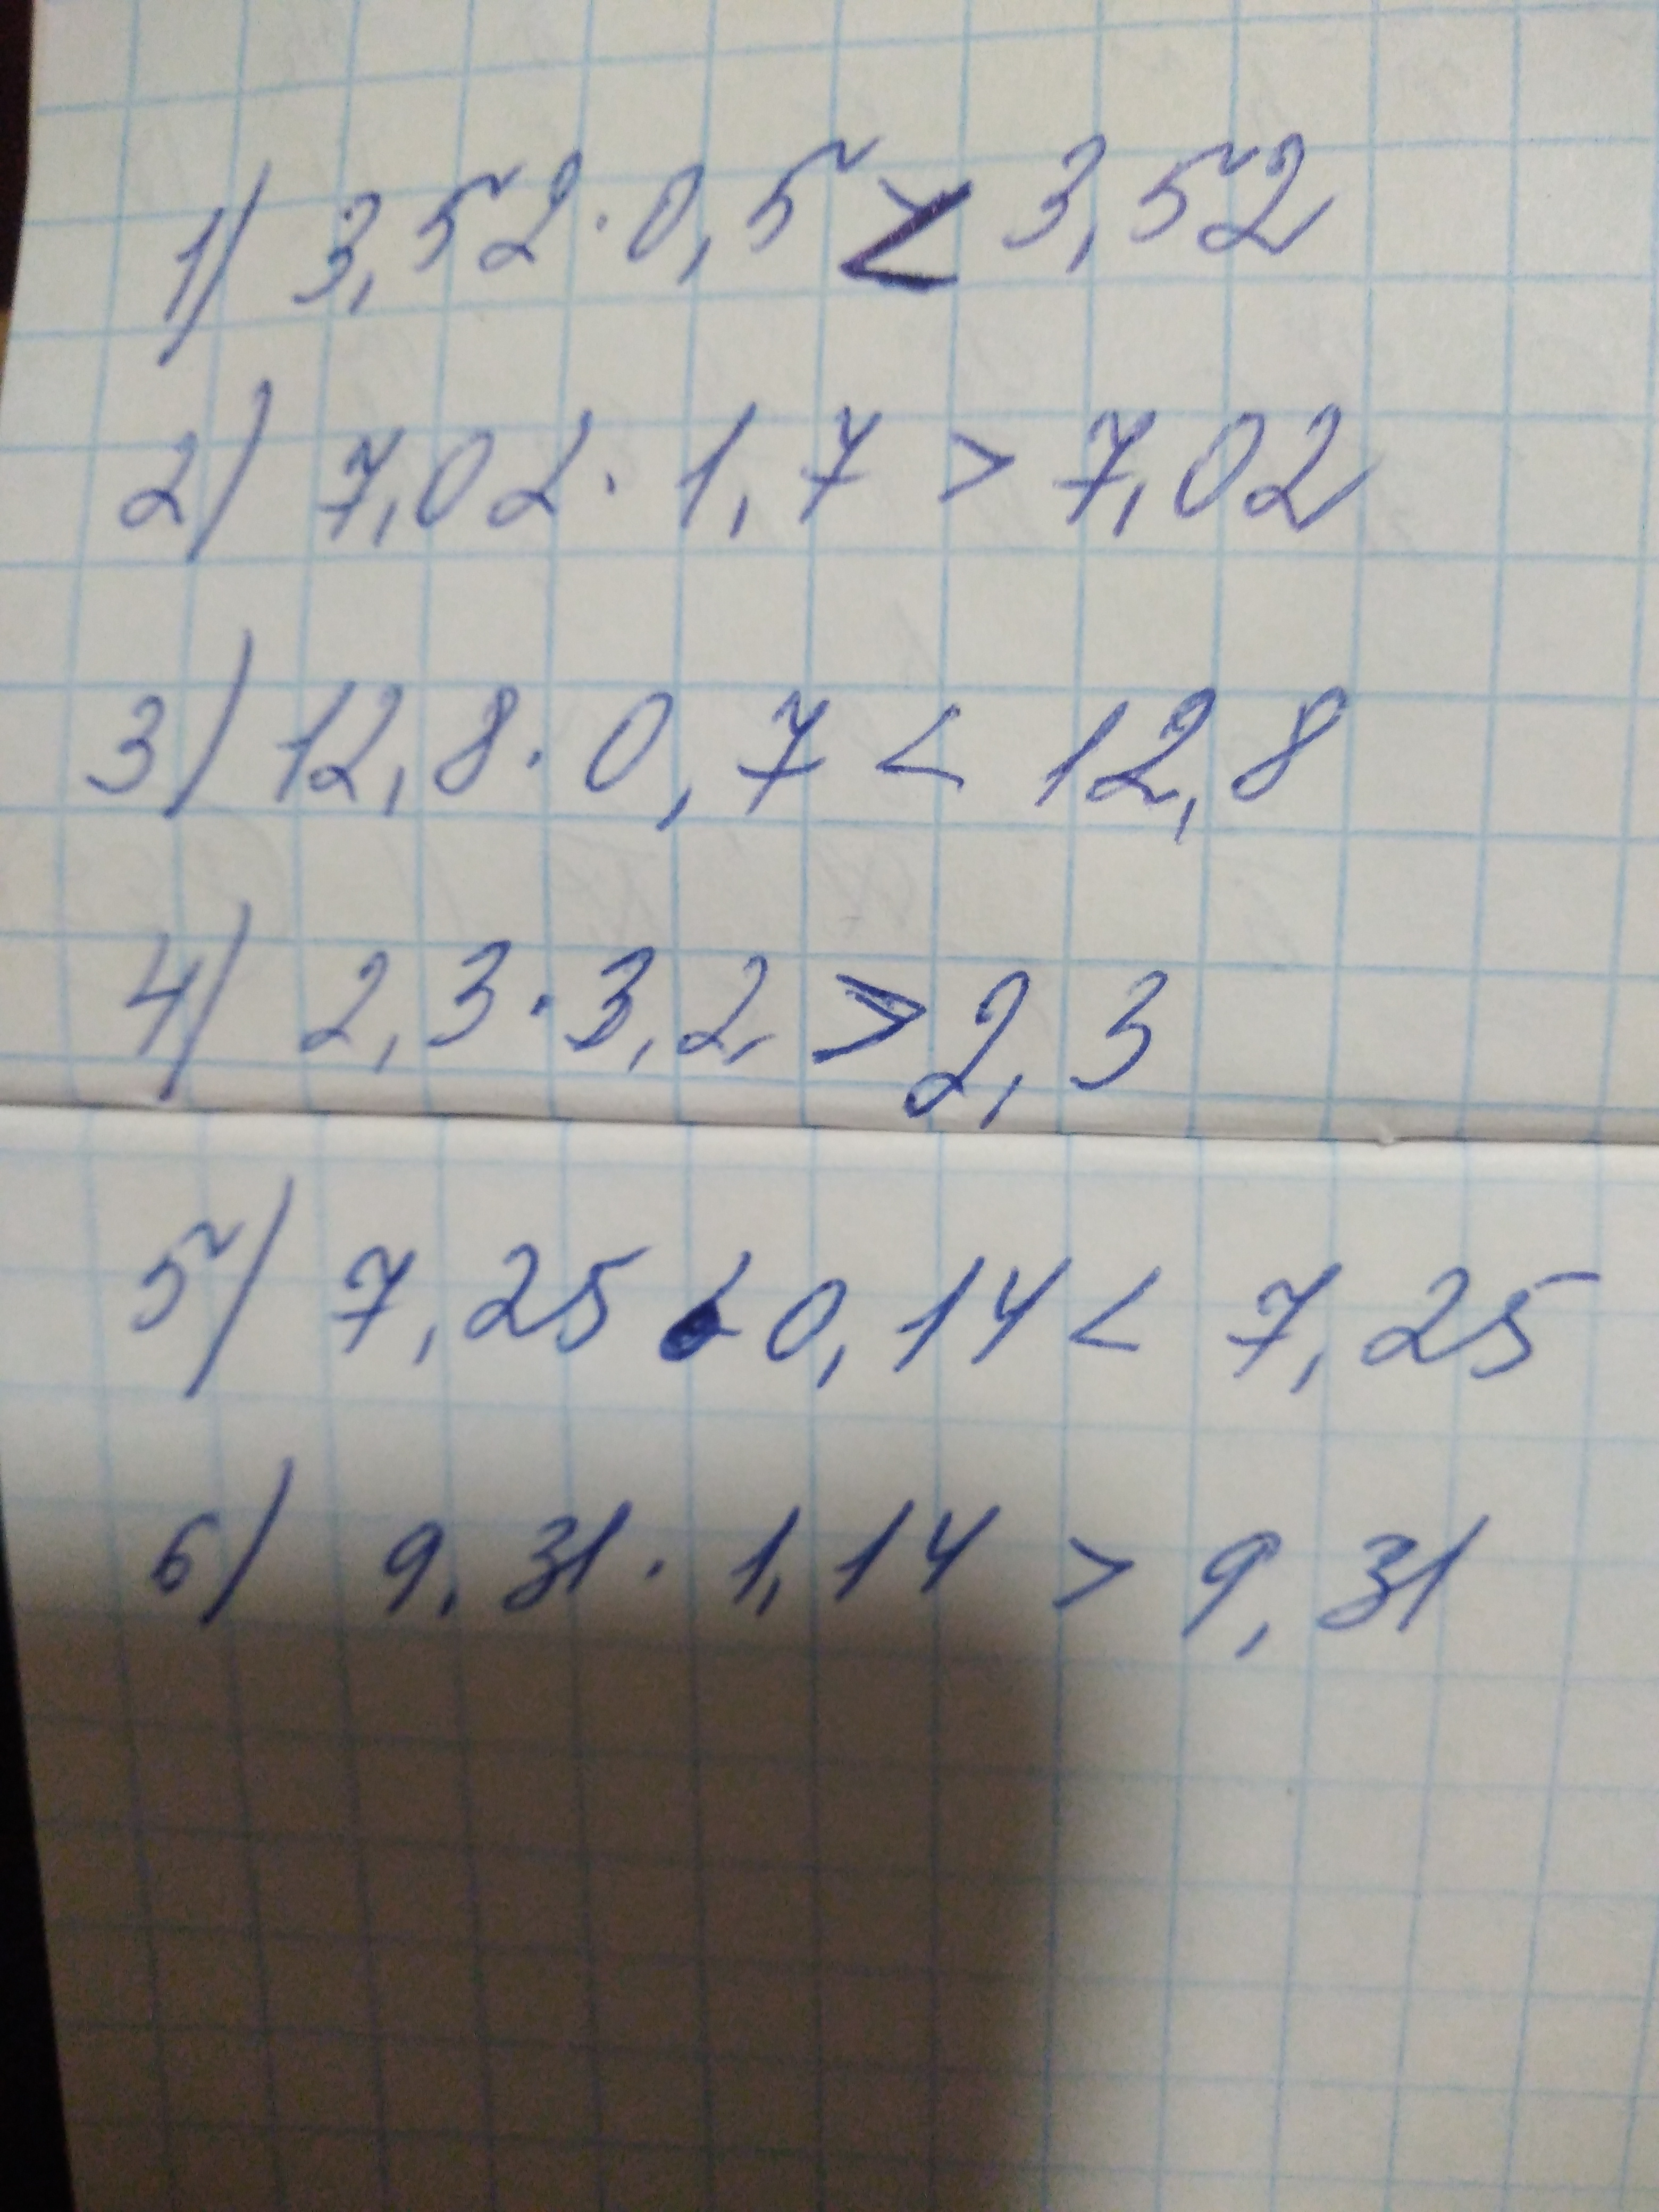 1) 3,52 · 0,5 < 3,52
2) 7,02 · 1,7 > 7,02
3) 12,8 · 0,7 < 12,8
4) 2,3 · 3,2 > 2,3
5) 7,25 · 0,14 < 7,25
6) 9,31 · 1,14 > 9,31